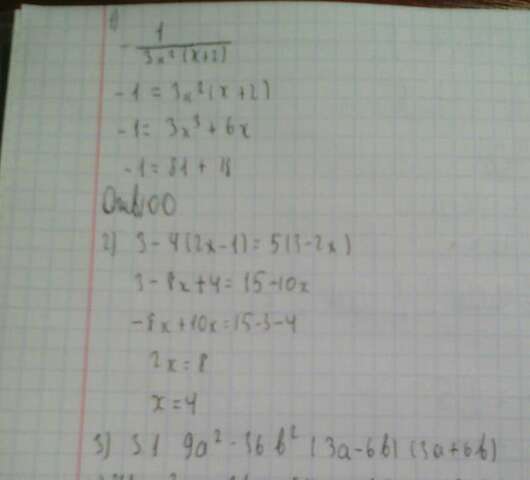 1)
- 1/(3x²(x+2))
-1 = 3x²(x+2)
-1 = 3x³ + 6x
-1 = 81 + 18
Ответ 100
2) 3 - 4(2x-1) = 5(3-2x)
3 - 8x + 4 = 15 - 10x
-8x + 10x = 15 - 3 - 4
2x = 8
x = 4
3) 9a² - 36b² (3a-6b) (3a+6b)